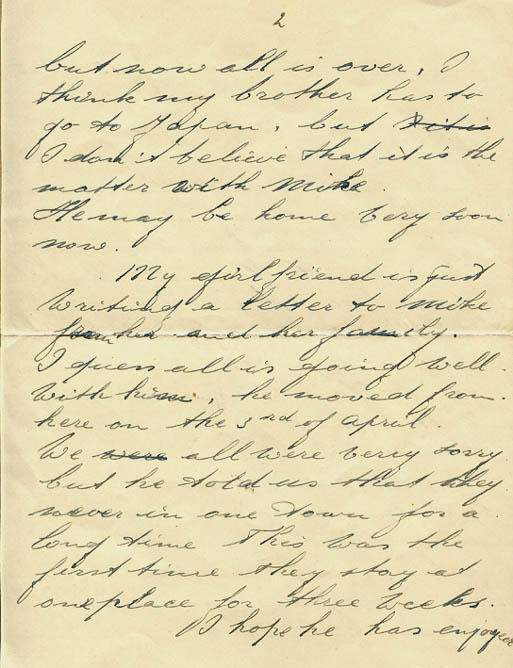 2
but now all is over, I
think my brother has to
go to Japan, but it is
I don't believe that it is the
matter with Mike.
He may be home very soon
now.
My girlfriend is just
writing a letter to Mike
from her and her family.
I guess all is going well
with him, he moved from
here on the 3rd of April.
We were all were very sorry
but he told us that they
never in one town for a
long time This was the
first time they stay at
one place for three weeks.
I hope he has enjoyed